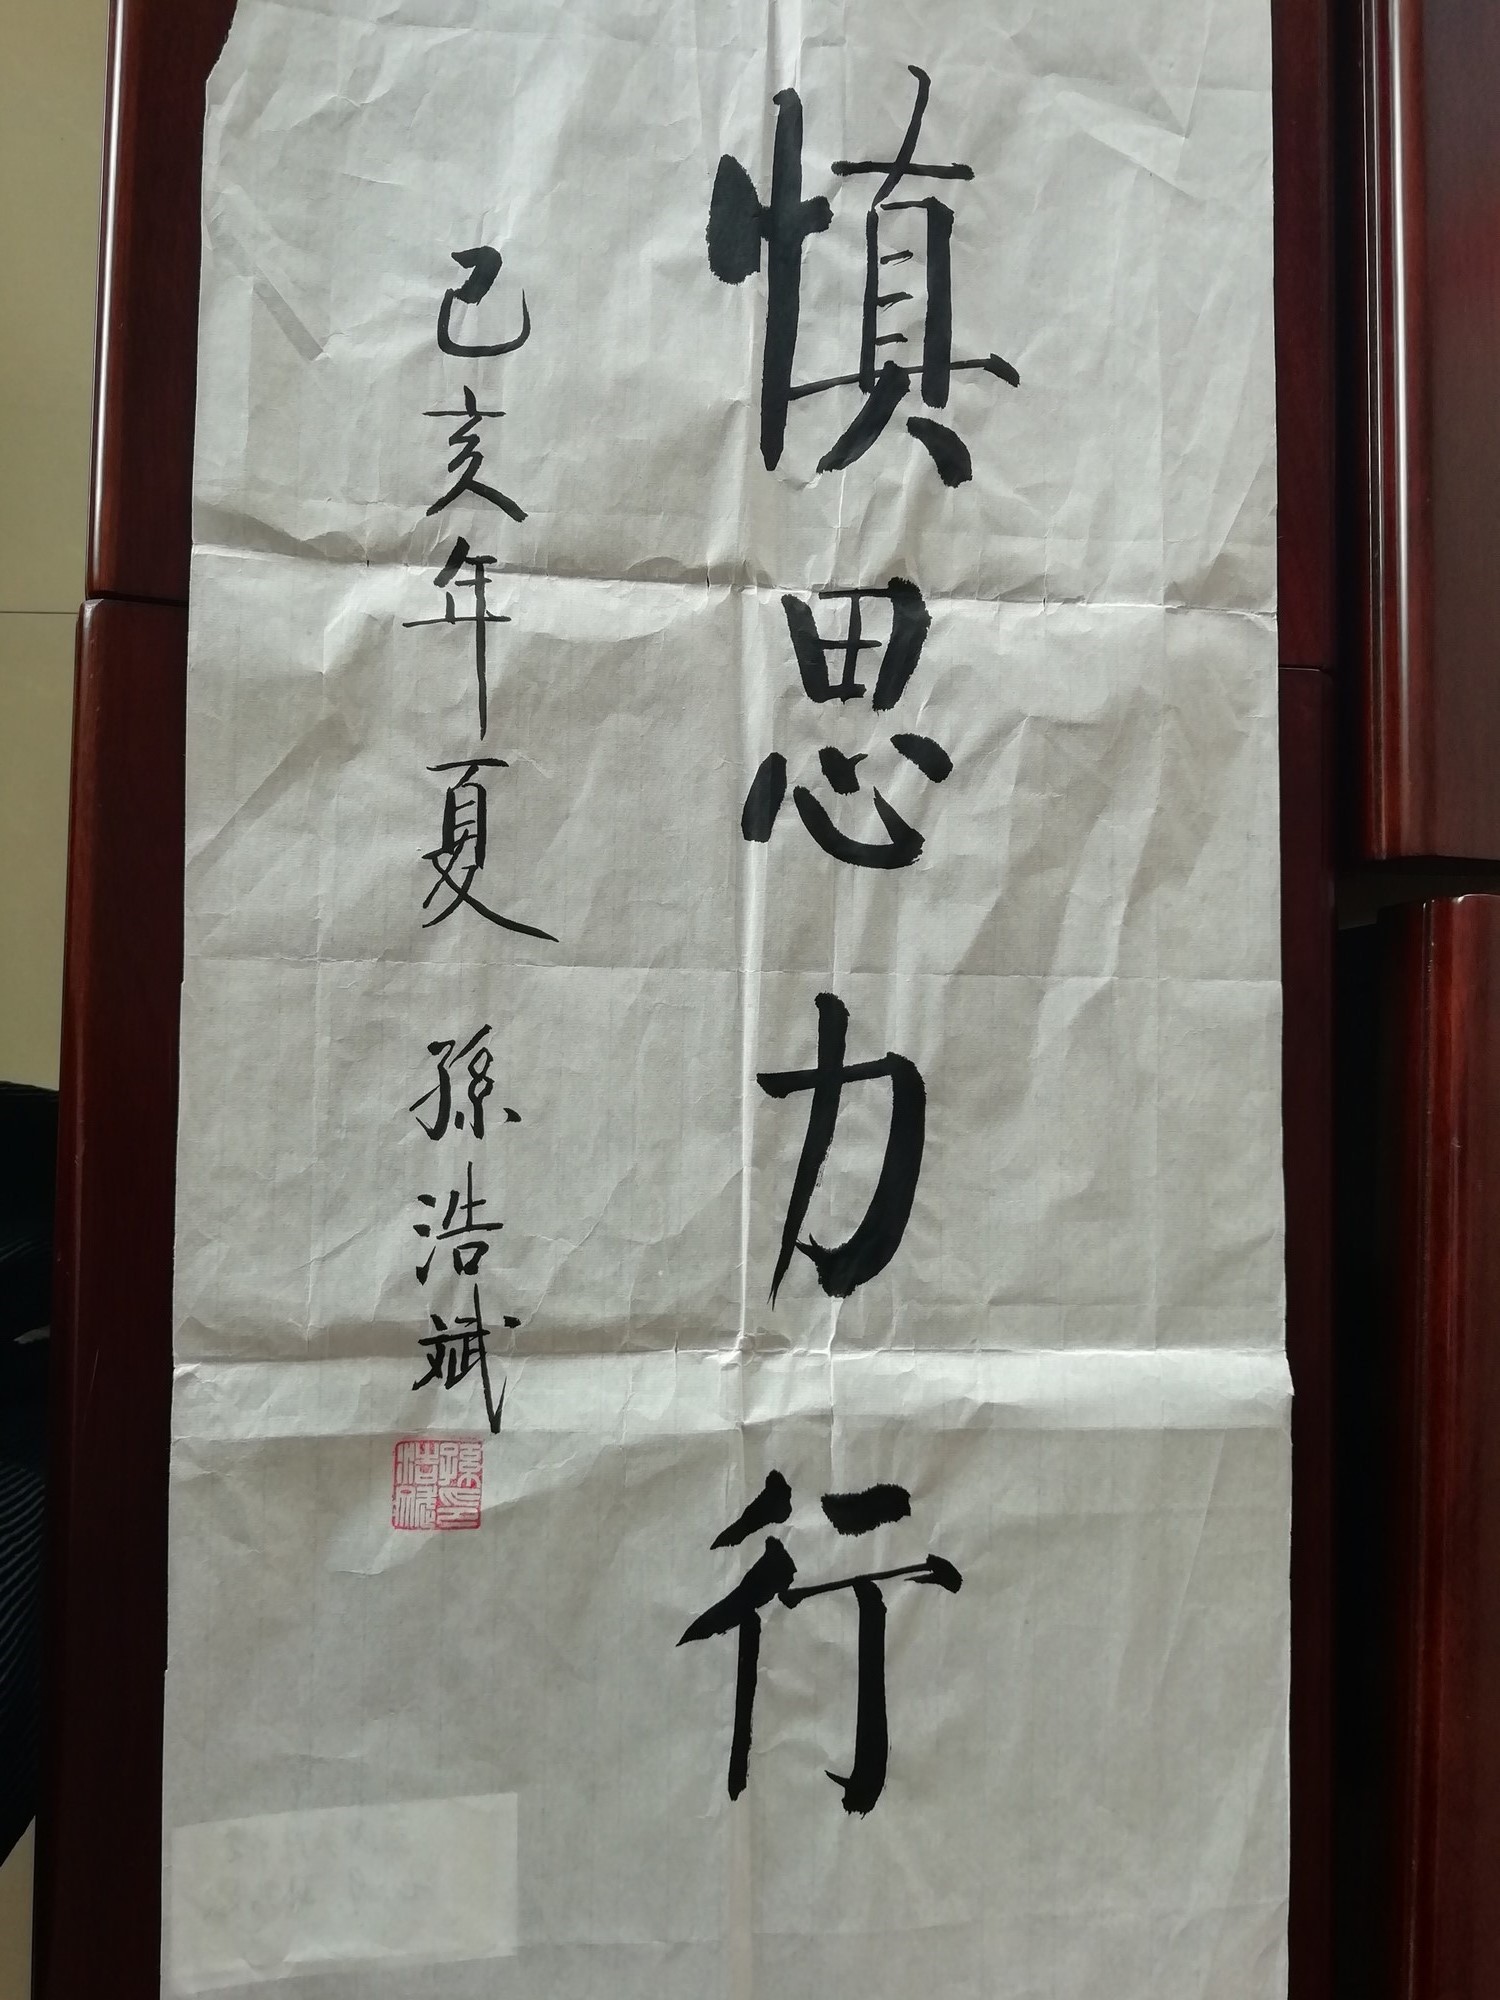 慎思力行
己亥年夏 孫浩斌
孫印浩斌